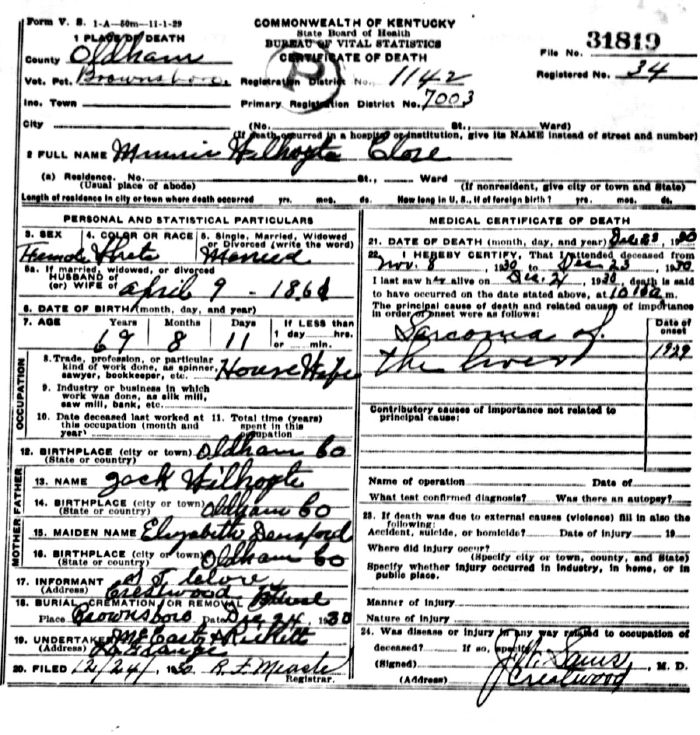 Form V. S. 1-A-50m-11-1-29
COMMONWEALTH OF KENTUCKY
State Board of Health
BUREAU OF VITAL STATISTICS
CERTIFICATE OF DEATH
1 PLACE OF DEATH
County Oldham
Vot. Pct. Brownsboro
Inc. Town
City
File No. 31819
Registered No. 34
Registration District No. 1142
Primary Registration District No. 7003
(No. St., Ward)
(If death occurred in a hospital or institution, give its NAME instead of street and number)
2 FULL NAME Minnie Hilhoyte Clore
(a) Residence. No. St., Ward
(Usual place of abode) (If nonresident, give city or town and State)
Length of residence in city or town where death occurred yrs. mos. ds. How long in U. S., if of foreign birth? yrs. mos. ds.
PERSONAL AND STATISTICAL PARTICULARS
3. SEX 4. COLOR OR RACE 5. Single, Married, Widowed
or Divorced (write the word)
Female White Married
5a. If married, widowed, or divorced
HUSBAND of
(or) WIFE of
April 9 - 1861
6. DATE OF BIRTH (month, day, and year)
7. AGE Years Months Days If LESS than
1 day hrs.
or min.
69 8 11
OCCUPATION
8. Trade, profession, or particular
kind of work done, as spinner,
sawyer, bookkeeper, etc. House Wife
9. Industry or business in which
work was done, as silk mill,
saw mill, bank, etc.
10. Date deceased last worked at 11. Total time (years)
this occupation (month and spent in this
year) occupation
12. BIRTHPLACE (city or town) Oldham Co
(State or country)
FATHER
13. NAME Jack Hilhoyte
14. BIRTHPLACE (city or town) Oldham Co
(State or country)
MOTHER
15. MAIDEN NAME Elizabeth Densford
16. BIRTHPLACE (city or town) Oldham Co
(State or country)
17. INFORMANT Clore
(Address) Crestwood
18. BURIAL, CREMATION OR REMOVAL
Place Brownsboro Date Dec 24, 1930
19. UNDERTAKER McCarty & Ricketts
(Address) La Grange
20. FILED 12/24/, 1930 R. F. Registrar.
MEDICAL CERTIFICATE OF DEATH
21. DATE OF DEATH (month, day, and year) Dec 23, 1930
22. I HEREBY CERTIFY, That I attended deceased from
Nov. 8, 1930 to Dec 23, 1930
I last saw her alive on Dec. 21, 1930, death is said
to have occurred on the date stated above, at 10 m.
The principal cause of death and related causes of importance
in order of onset were as follows:
Date of
onset
Sarcoma of
the liver 1929
Contributory causes of importance not related to
principal cause:
Name of operation Date of
What test confirmed diagnosis? Was there an autopsy?
23. If death was due to external causes (violence) fill in also the
following:
Accident, suicide, or homicide? Date of injury 19
Where did injury occur?
(Specify city or town, county, and State)
Specify whether injury occurred in industry, in home, or in
public place.
Manner of injury
Nature of injury
24. Was disease or injury in any way related to occupation of
deceased? If so, specify
(Signed) M. D.
(Address) Crestwood